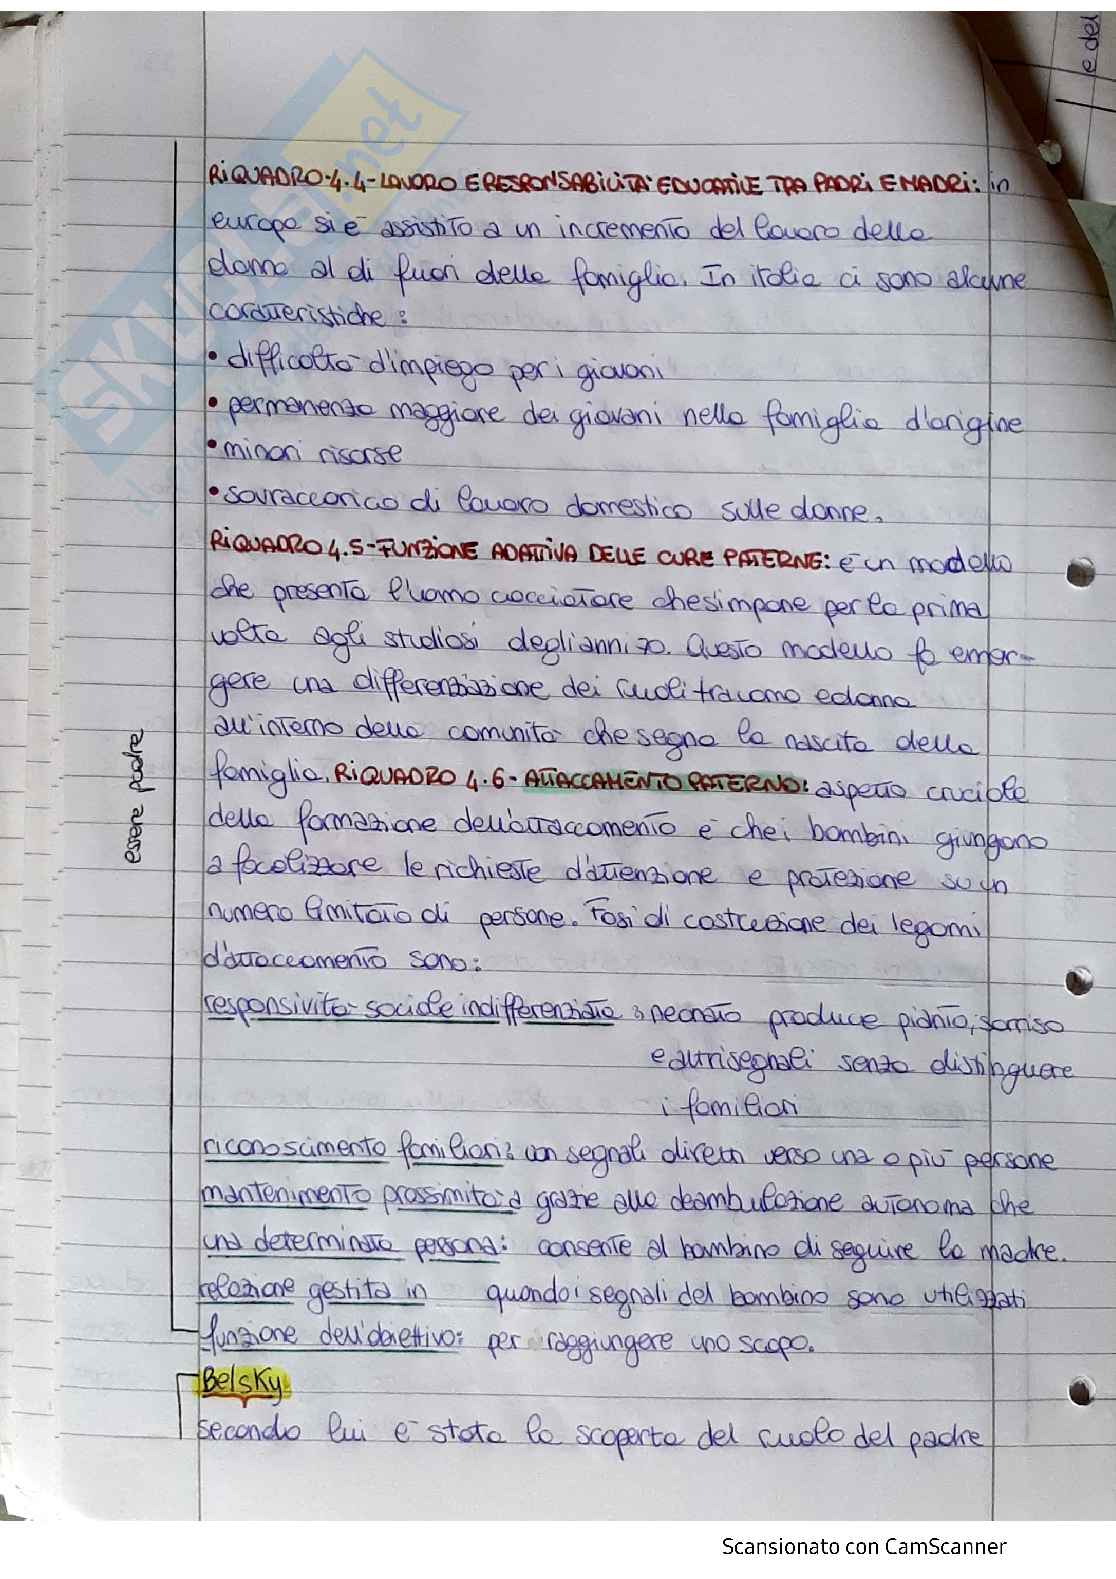 e del
RiQUADRO 4.4 - LAVORO E RESPONSABILITA' EDUCATIVE TRA PADRI E MADRI: in
europa si è assistito a un incremento del lavoro della
donna al di fuori della famiglia. In italia ci sono alcune
caratteristiche:
• difficoltà d'impiego per i giovani
• permanenza maggiore dei giovani nella famiglia d'origine
• minori risorse
• sovraccarico di lavoro domestico sulle donne.
RiQUADRO 4.5 - FUNZIONE ADATTIVA DELLE CURE PATERNE: è un modello
che presenta l'uomo cacciatore che s'impone per la prima
volta agli studiosi degli anni 70. Questo modello fa emer-
gere una differenziazione dei ruoli tra uomo e donna
all'interno della comunità che segna la nascita della
famiglia. RiQUADRO 4.6 - ATTACCAMENTO PATERNO: aspetto cruciale
della formazione dell'attaccamento è che i bambini giungono
a focalizzare le richieste d'attenzione e protezione su un
numero limitato di persone. Fasi di costruzione dei legami
d'attaccamento sono:
responsività sociale indifferenziata: neonato produce pianto, sorriso
e altri segnali senza distinguere
i familiari
riconoscimento familiari: con segnali diretti verso una o più persone
mantenimento prossimità a grazie alla deambulazione autonoma che
una determinata persona: consente al bambino di seguire la madre.
relazione gestita in quando i segnali del bambino sono utilizzati
funzione dell'obiettivo: per raggiungere uno scopo.
essere padre
Belsky
secondo lui è stata la scoperta del ruolo del padre
SKUOLA.net
Scansionato con CamScanner